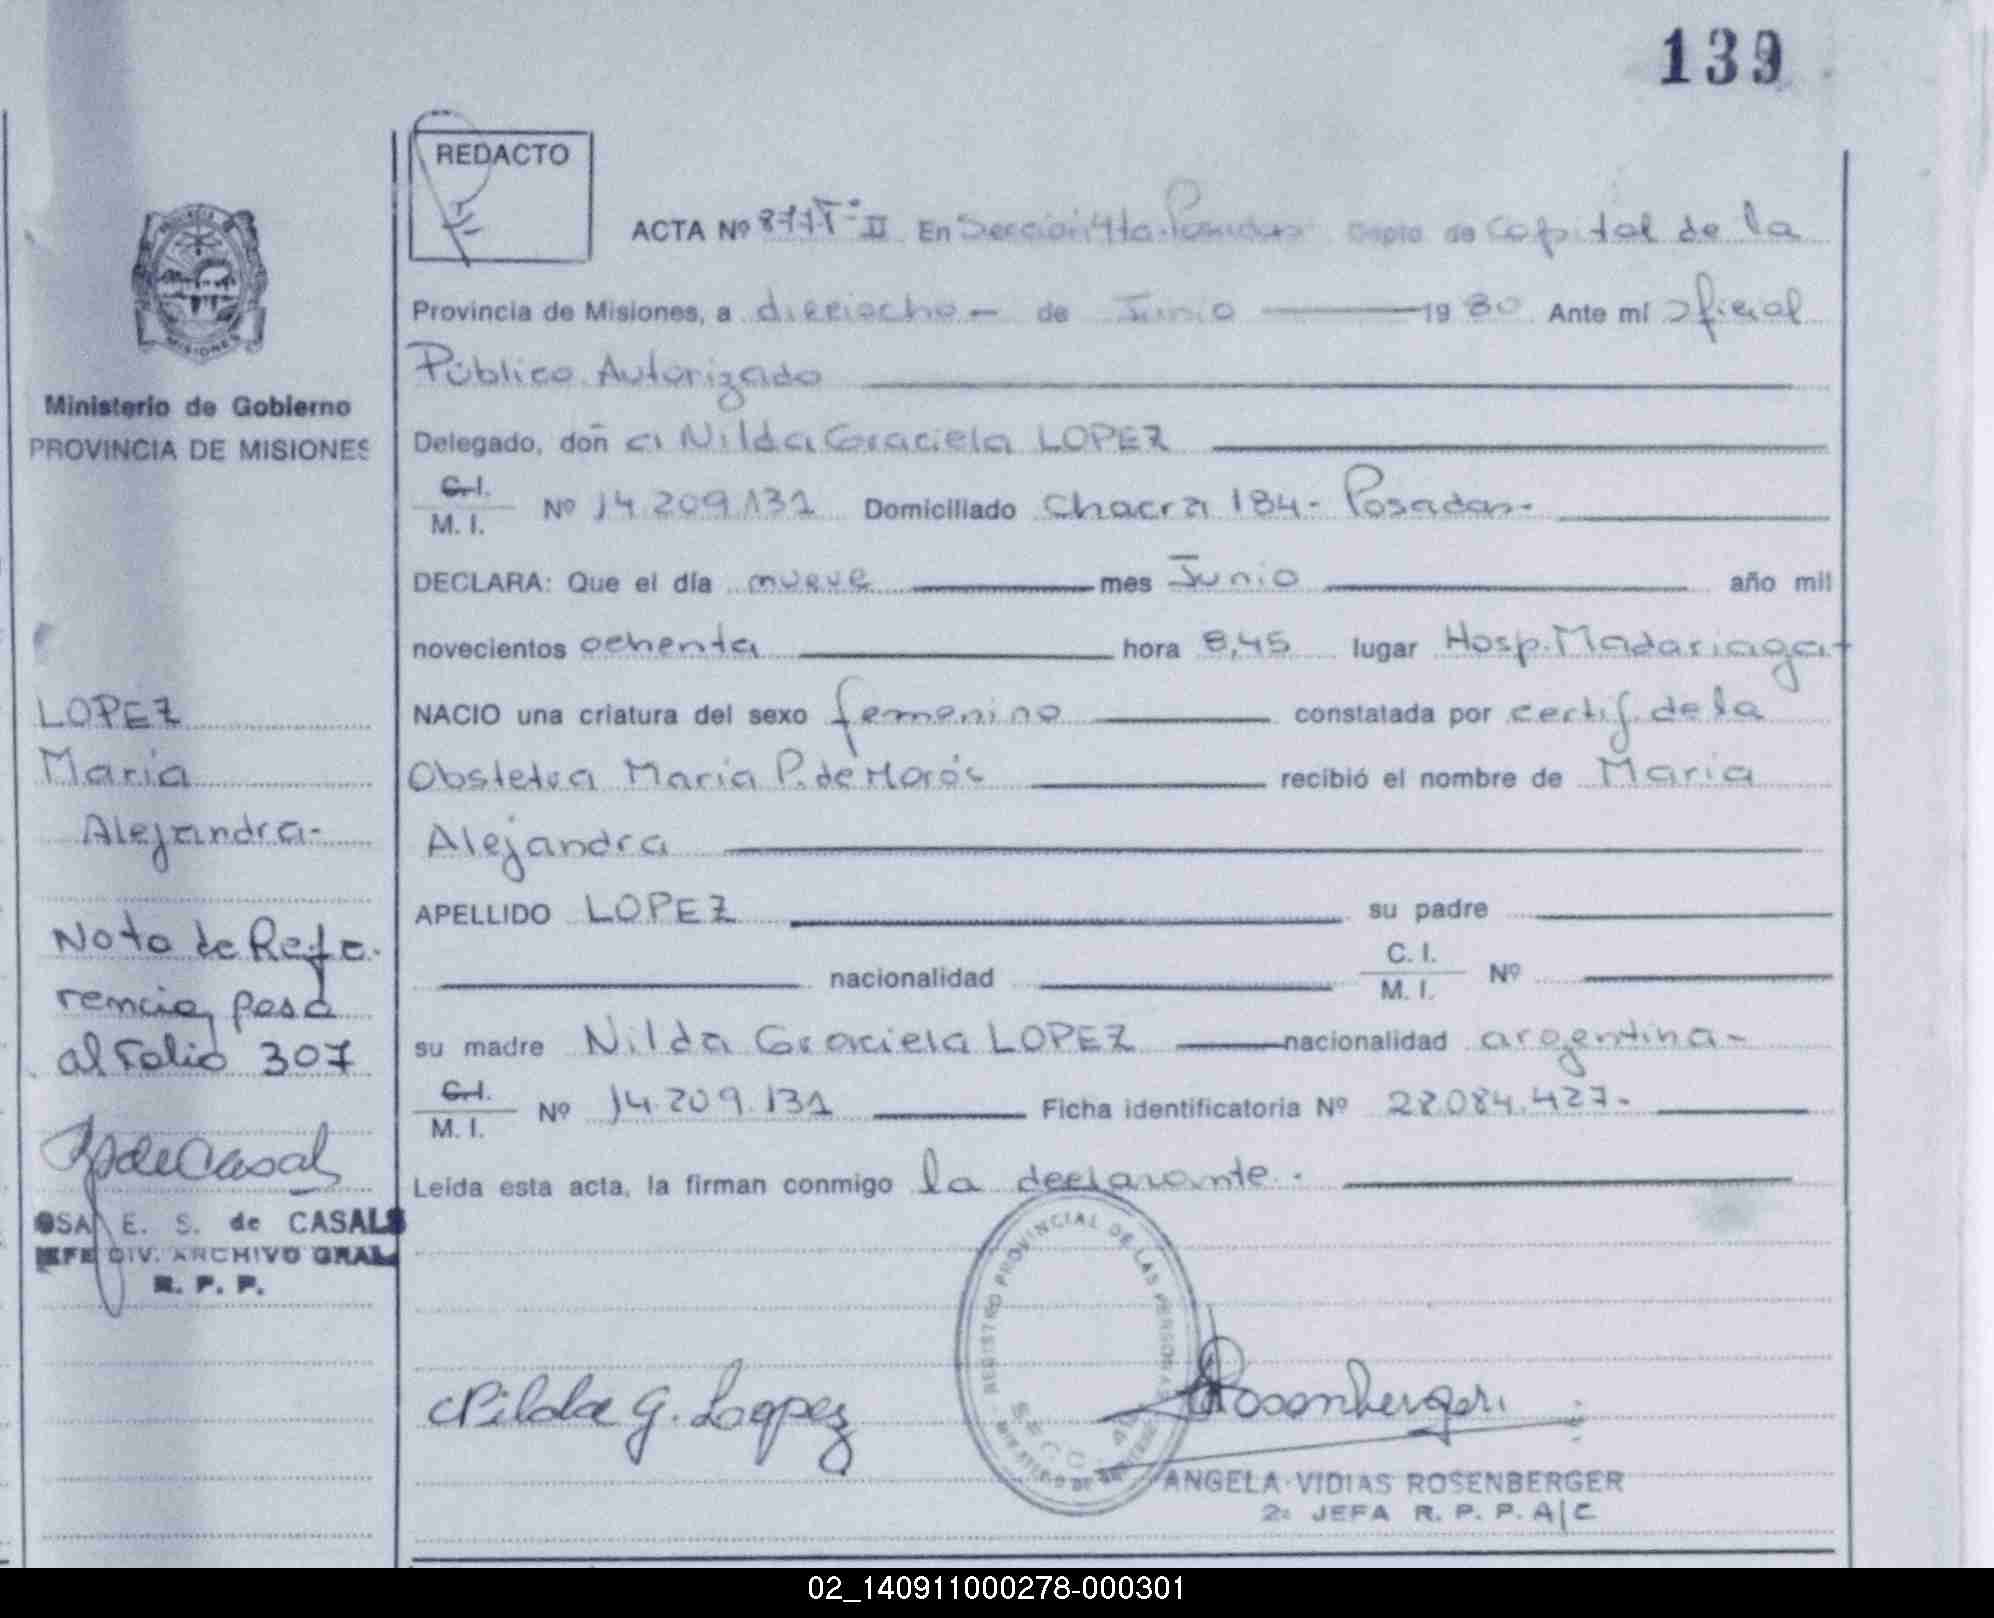 139
REDACTO
ACTA Nº 877 Tº II En Sección 4ta. Posadas Dpto de Capital de la
Provincia de Misiones, a dieciocho - de Junio 1980 Ante mí oficial
Público Autorizado
Delegado, doña Nilda Graciela LOPEZ
C.I.
M. I. Nº 14.209.131 Domiciliado Chacra 184 - Posadas -
DECLARA: Que el día nueve mes Junio año mil
novecientos ochenta hora 8,45 lugar Hosp. Madariaga -
NACIO una criatura del sexo femenino constatada por certif. de la
Obstetra Maria P. de recibió el nombre de Maria
Alejandra
APELLIDO LOPEZ su padre
nacionalidad C. I.
M. I. Nº
su madre Nilda Graciela LOPEZ nacionalidad argentina -
C.I.
M. I. Nº 14.209.131 Ficha identificatoria Nº 28.084.427 -
Leída esta acta, la firman conmigo la declarante. -
REGISTRO PROVINCIAL DE LAS PERSONAS
SECC. 4a
Nilda G. Lopez
Rosenberger
ANGELA VIDIAS ROSENBERGER
2ª JEFA R. P. P. A/C
MISIONES
Ministerio de Gobierno
PROVINCIA DE MISIONES
LOPEZ
Maria
Alejandra -
Nota de Refe-
rencia, pasa
al Folio 307
de Casals
OSA E. S. de CASALS
JEFE DIV. ARCHIVO GRAL
R. P. P.
02_140911000278-000301